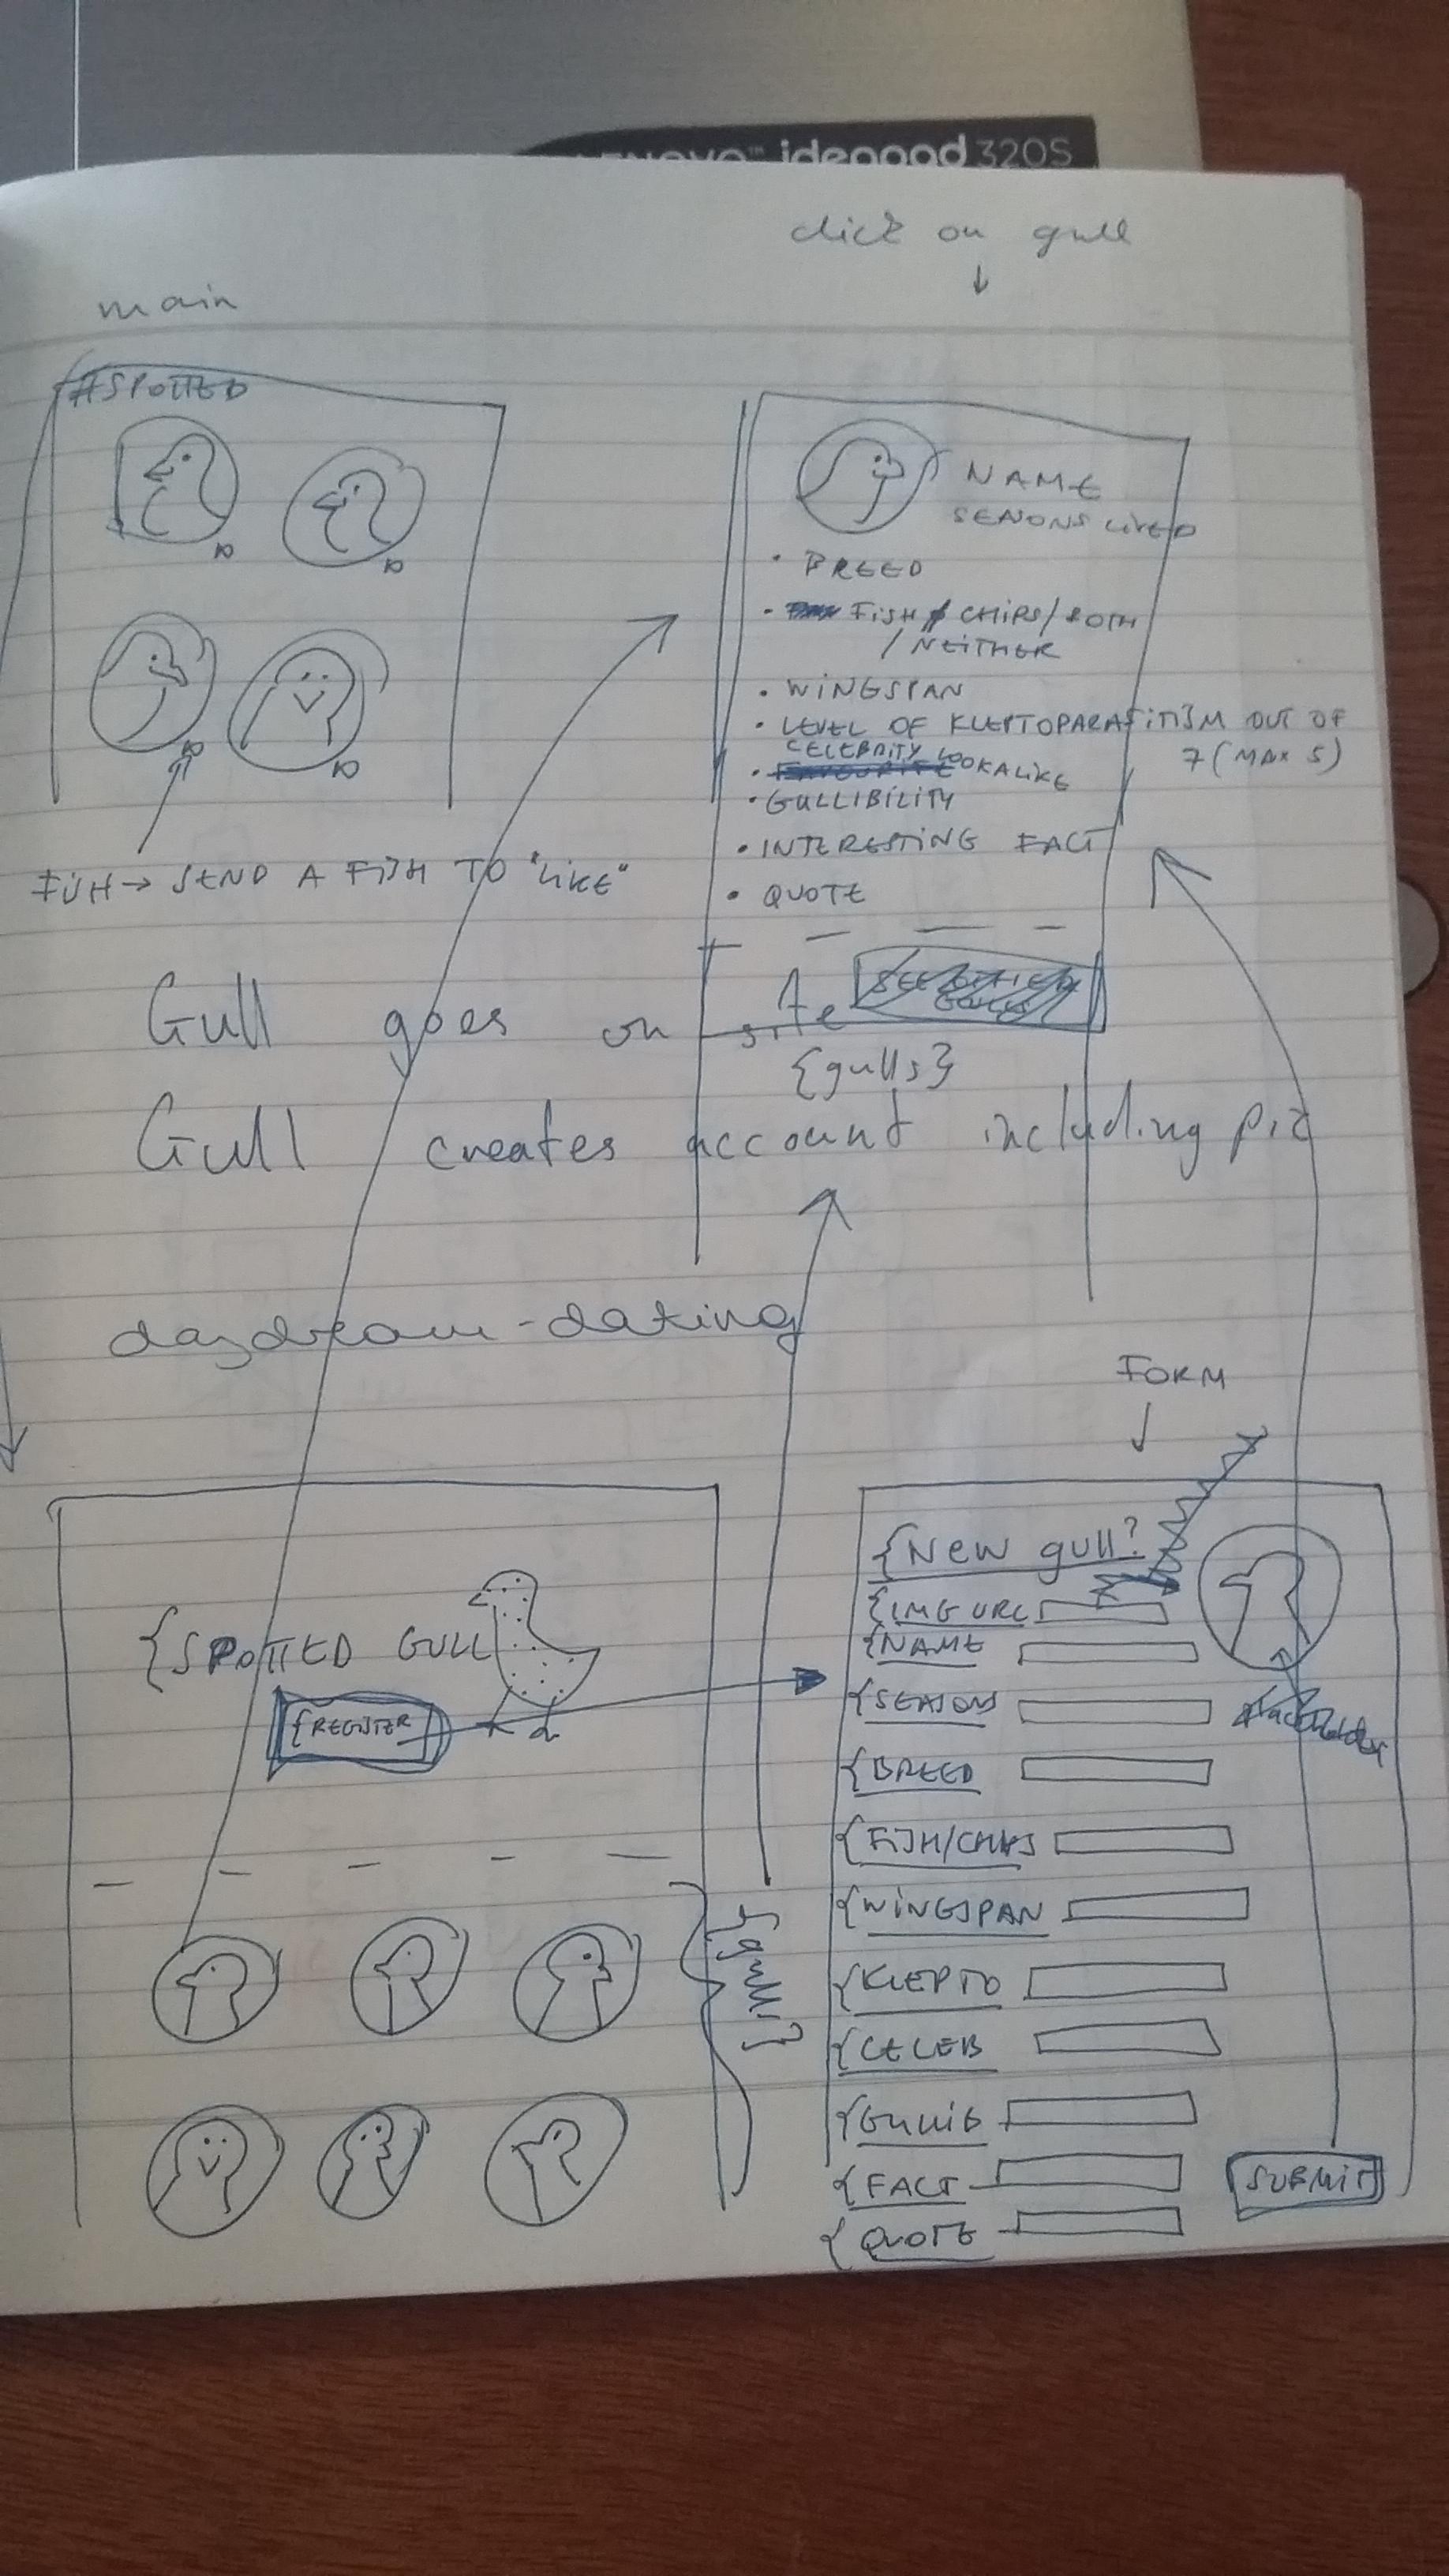 ideapad 320S
click on gull
main
#SPOTTED
NAME
SEASONS LIVED
BREED
FISH / CHIPS / BOTH
/ NEITHER
WINGSPAN
LEVEL OF KLEPTOPARASITISM OUT OF
7 (MAX 5)
CELEBRITY LOOKALIKE
GULLIBILITY
INTERESTING FACT
QUOTE
FISH → SEND A FISH TO "LIKE"
Gull goes on site
{gulls}
Gull creates account including pic
daydream-dating
FORM
{New gull?
{IMG URL
{NAME
{SEASONS
{BREED
{FISH/CHIPS
{WINGSPAN
{KLEPTO
{CELEB
{GULLIB
{FACT
{QUOTE
SUBMIT
{SPOTTED GULL
{REGISTER
{gulls}